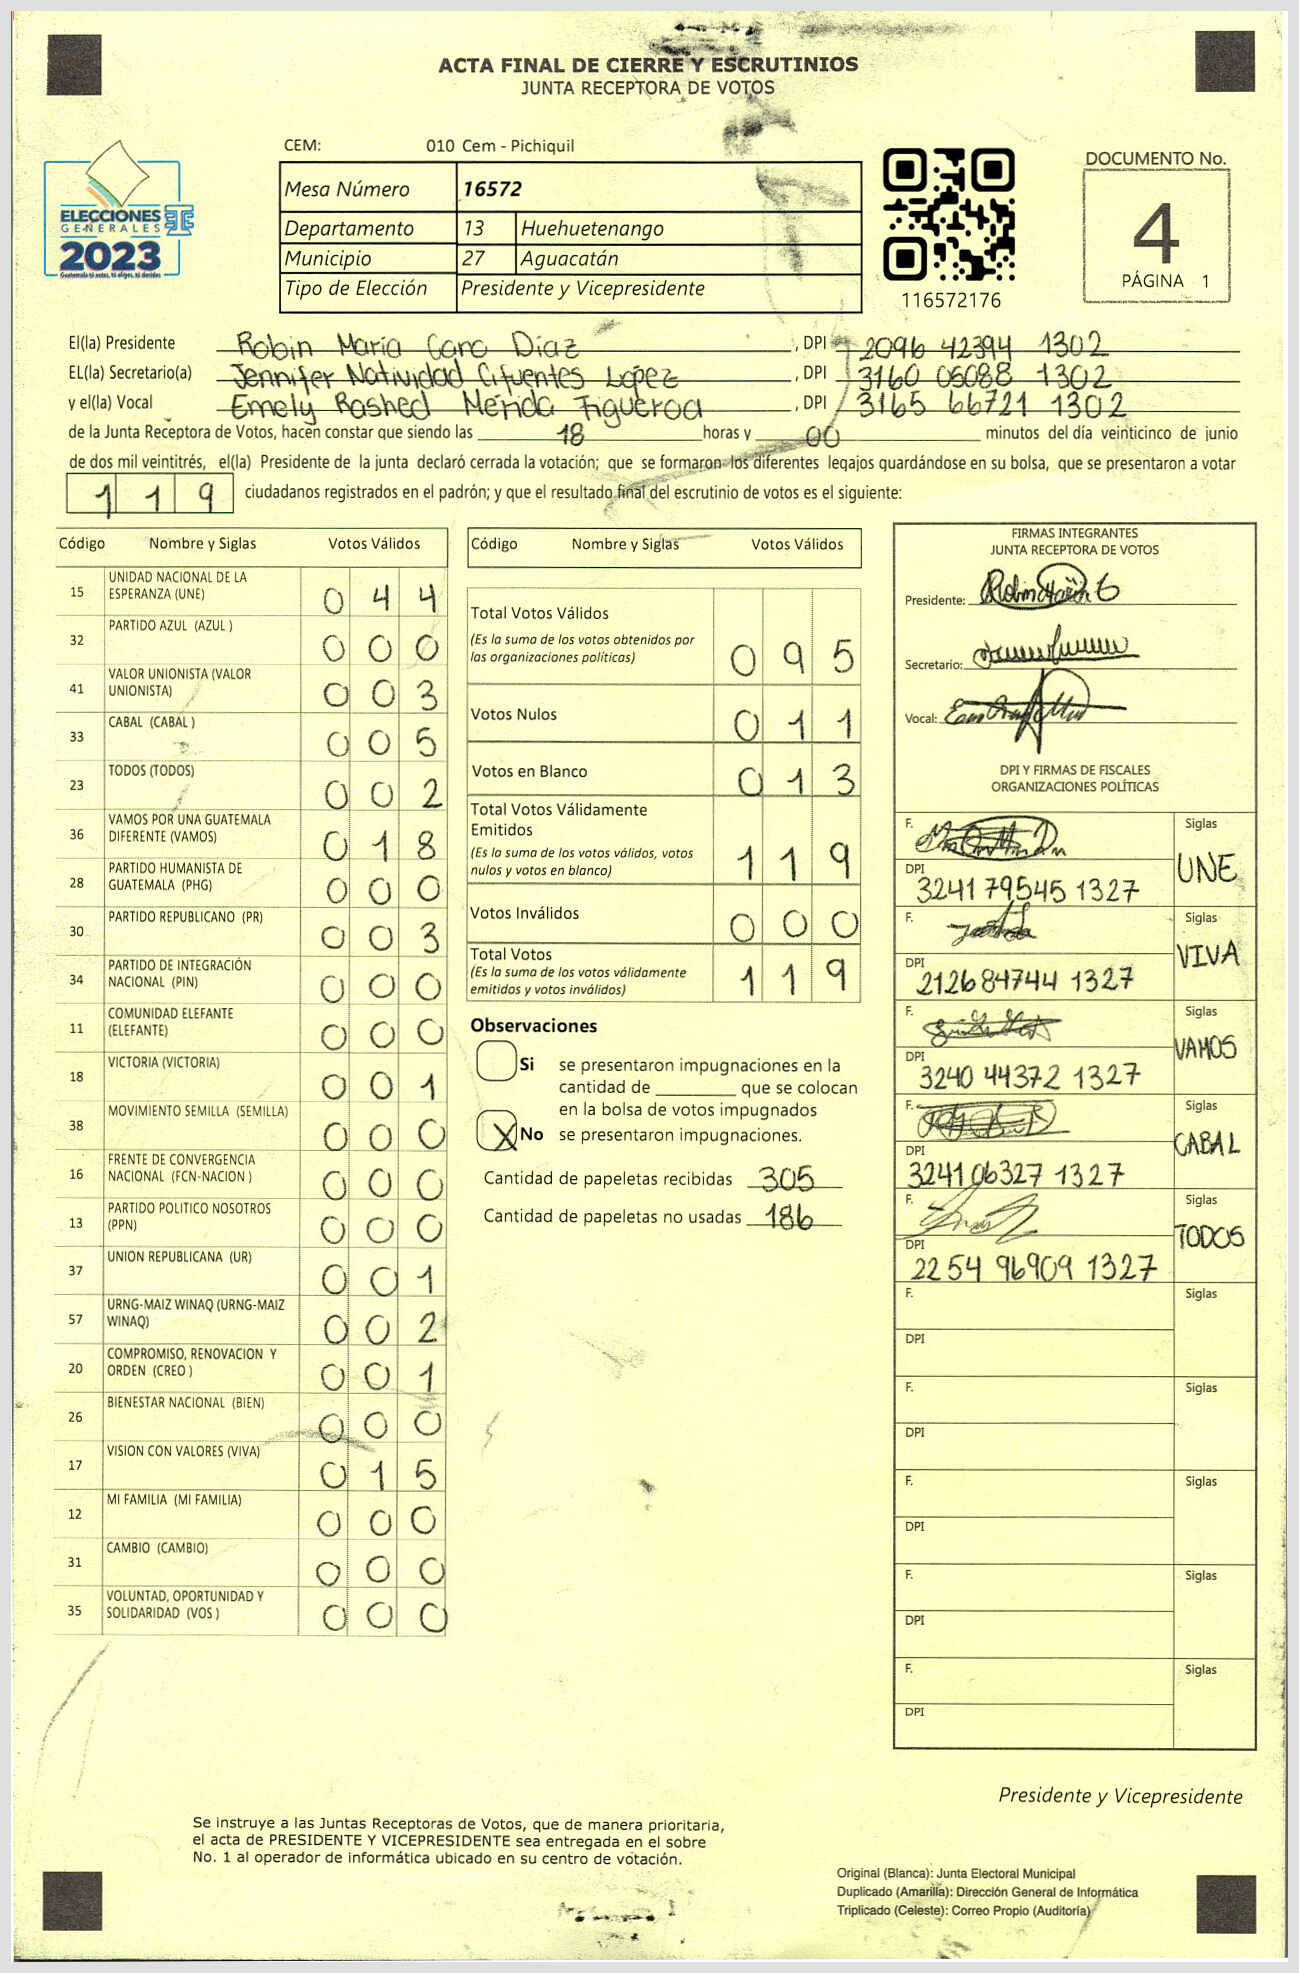 ACTA FINAL DE CIERRE Y ESCRUTINIOS
JUNTA RECEPTORA DE VOTOS
CEM: 010 Cem - Pichiquil
ELECCIONES
GENERALES
2023
Guatemala tú votas, tú eliges, tú decides
Mesa Número 16572
Departamento 13 Huehuetenango
Municipio 27 Aguacatán
Tipo de Elección Presidente y Vicepresidente
116572176
DOCUMENTO No.
4
PÁGINA 1
El(la) Presidente Robin María Cano Díaz , DPI 2096 42394 1302
EL(la) Secretario(a) Jennifer Natividad Cifuentes López , DPI 3160 05088 1302
y el(la) Vocal Emely Rashed Mérida Figueroa , DPI 3165 66721 1302
de la Junta Receptora de Votos, hacen constar que siendo las 18 horas y 00 minutos del día veinticinco de junio
de dos mil veintitrés, el(la) Presidente de la junta declaró cerrada la votación; que se formaron los diferentes legajos quardándose en su bolsa, que se presentaron a votar
119 ciudadanos registrados en el padrón; y que el resultado final del escrutinio de votos es el siguiente:
Código Nombre y Siglas Votos Válidos
15 UNIDAD NACIONAL DE LA ESPERANZA (UNE) 044
32 PARTIDO AZUL (AZUL ) 000
41 VALOR UNIONISTA (VALOR UNIONISTA) 003
33 CABAL (CABAL ) 005
23 TODOS (TODOS) 002
36 VAMOS POR UNA GUATEMALA DIFERENTE (VAMOS) 018
28 PARTIDO HUMANISTA DE GUATEMALA (PHG) 000
30 PARTIDO REPUBLICANO (PR) 003
34 PARTIDO DE INTEGRACIÓN NACIONAL (PIN) 000
11 COMUNIDAD ELEFANTE (ELEFANTE) 000
18 VICTORIA (VICTORIA) 001
38 MOVIMIENTO SEMILLA (SEMILLA) 000
16 FRENTE DE CONVERGENCIA NACIONAL (FCN-NACION ) 000
13 PARTIDO POLITICO NOSOTROS (PPN) 000
37 UNION REPUBLICANA (UR) 001
57 URNG-MAIZ WINAQ (URNG-MAIZ WINAQ) 002
20 COMPROMISO, RENOVACION Y ORDEN (CREO ) 001
26 BIENESTAR NACIONAL (BIEN) 000
17 VISION CON VALORES (VIVA) 015
12 MI FAMILIA (MI FAMILIA) 000
31 CAMBIO (CAMBIO) 000
35 VOLUNTAD, OPORTUNIDAD Y SOLIDARIDAD (VOS ) 000
Código Nombre y Siglas Votos Válidos
Total Votos Válidos
(Es la suma de los votos obtenidos por
las organizaciones políticas) 095
Votos Nulos 011
Votos en Blanco 013
Total Votos Válidamente
Emitidos
(Es la suma de los votos válidos, votos
nulos y votos en blanco) 119
Votos Inválidos 000
Total Votos
(Es la suma de los votos válidamente
emitidos y votos inválidos) 119
Observaciones
Si se presentaron impugnaciones en la
cantidad de ________ que se colocan
en la bolsa de votos impugnados
X No se presentaron impugnaciones.
Cantidad de papeletas recibidas 305
Cantidad de papeletas no usadas 186
FIRMAS INTEGRANTES
JUNTA RECEPTORA DE VOTOS
Presidente:
Secretario:
Vocal:
DPI Y FIRMAS DE FISCALES
ORGANIZACIONES POLÍTICAS
F. Siglas
DPI 3241 79545 1327 UNE
F. Siglas
DPI 2126 84744 1327 VIVA
F. Siglas
DPI 3240 44372 1327 VAMOS
F. Siglas
DPI 3241 06327 1327 CABAL
F. Siglas
DPI 2254 96909 1327 TODOS
F. Siglas
DPI
F. Siglas
DPI
F. Siglas
DPI
F. Siglas
DPI
F. Siglas
DPI
Presidente y Vicepresidente
Se instruye a las Juntas Receptoras de Votos, que de manera prioritaria,
el acta de PRESIDENTE Y VICEPRESIDENTE sea entregada en el sobre
No. 1 al operador de informática ubicado en su centro de votación.
Original (Blanca): Junta Electoral Municipal
Duplicado (Amarilla): Dirección General de Informática
Triplicado (Celeste): Correo Propio (Auditoría)